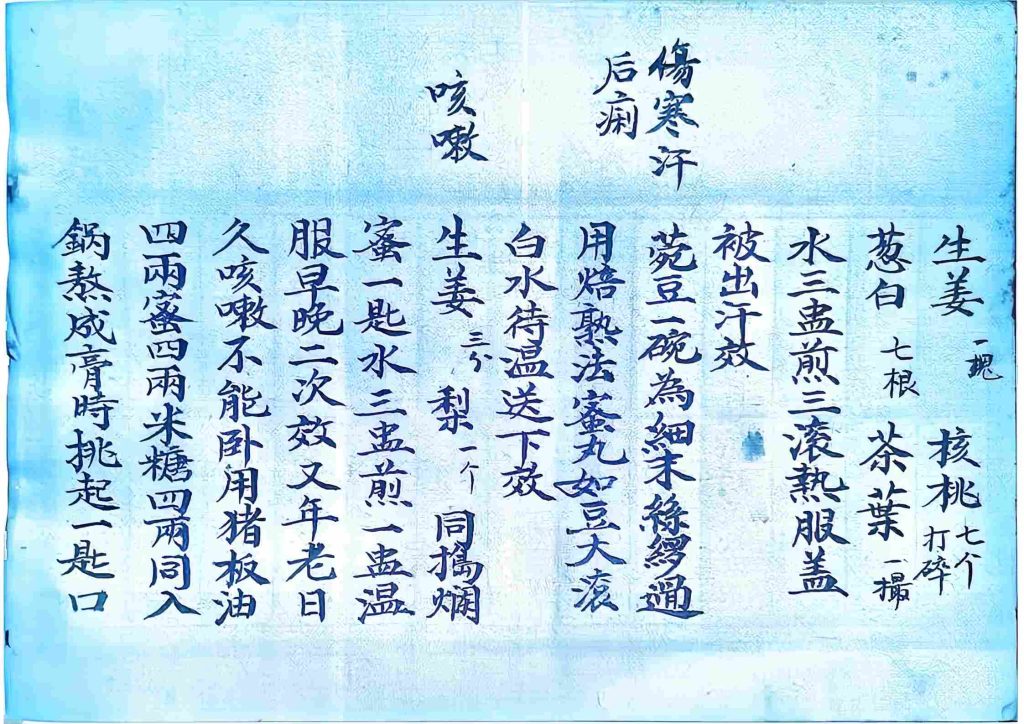 生姜 一塊 核桃 七个打碎
葱白 七根 茶葉 一撮
水三盅煎三滚熱服盖
被出汗效
傷寒汗
后痢
菀豆一碗為細末絲繆過
用焙熟法蜜丸如豆大滚
白水待温送下效
咳嗽
生姜 三分 梨 一个 同搗爛
蜜一匙水三盅煎一盅温
服早晚二次效又年老日
久咳嗽不能卧用猪板油
四兩蜜四兩米糖四兩同入
鍋熬成膏時挑起一匙口